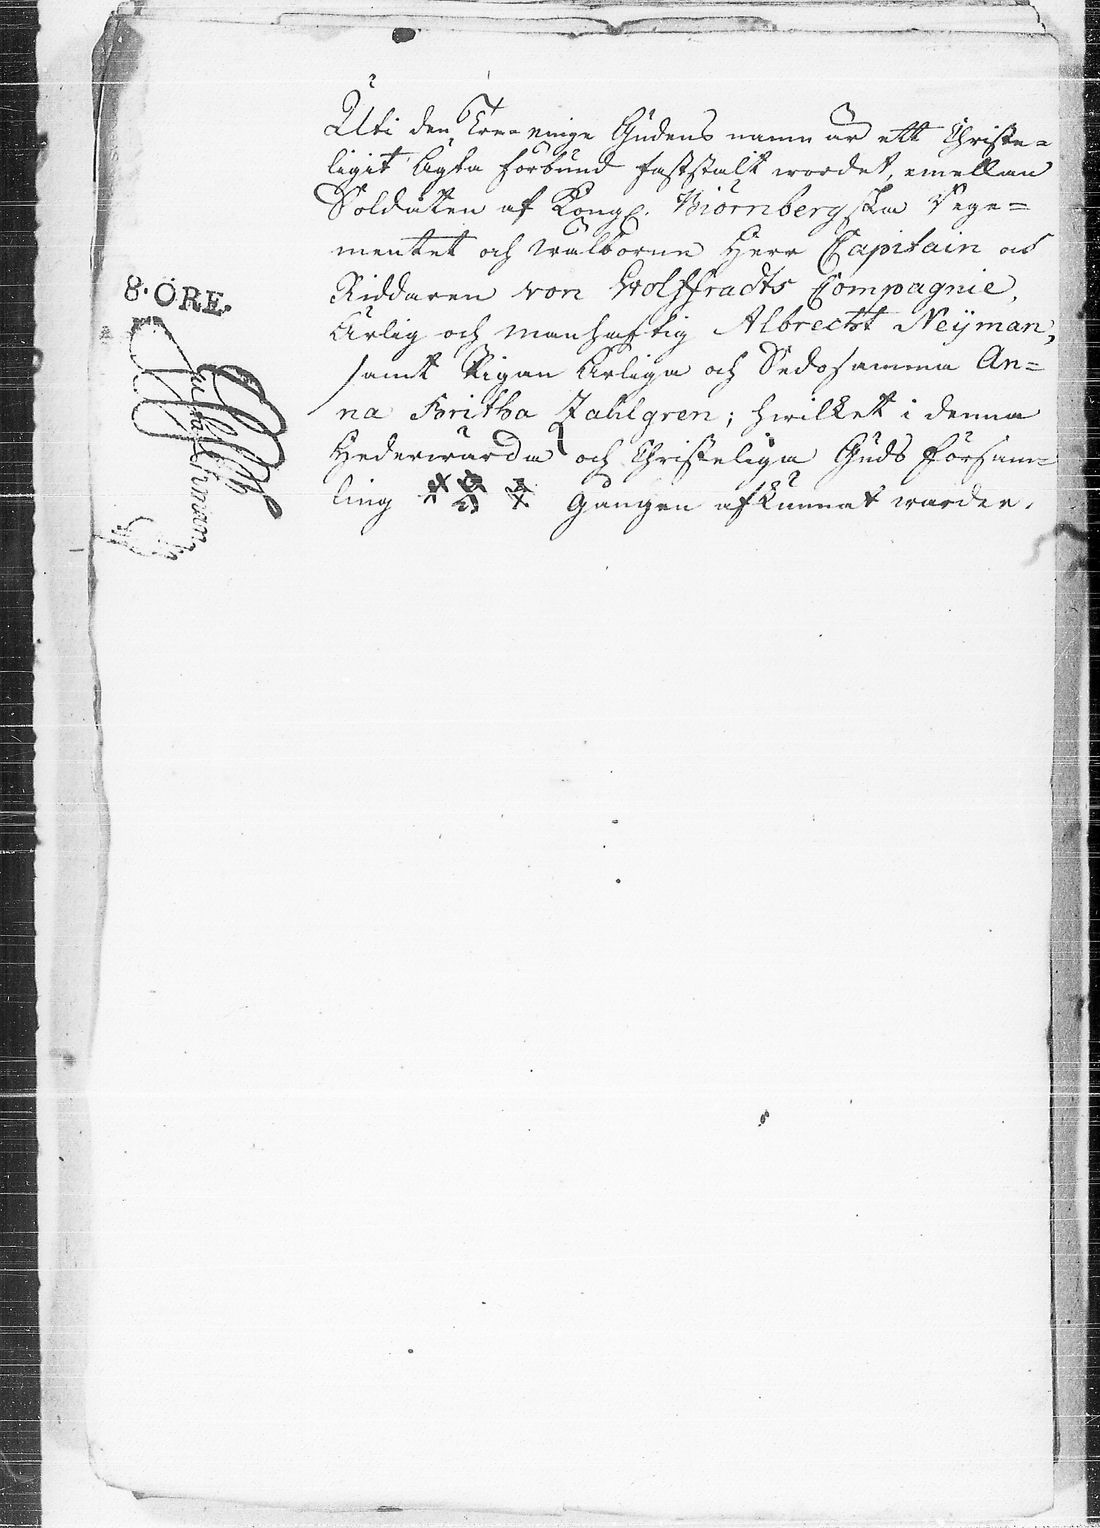 Uti den Tree-enige Gudens namn är ett Christe=
ligit Ägta förbund faststält wordet, emellan
Soldaten af Kongl. Biörnbergska Rege=
mentet och wälborne Herr Capitain och
Riddaren von Wolffradts Compagnie,
Ärlig och manhaftig Albrecht Neÿman,
samt Pigan Ärliga och Sedosamma An=
na Britha Zahlgren; hwilket i denna
Hederwärda och Christeliga Guds försam=
ling Gången afkunnat warder.
8. ÖRE.